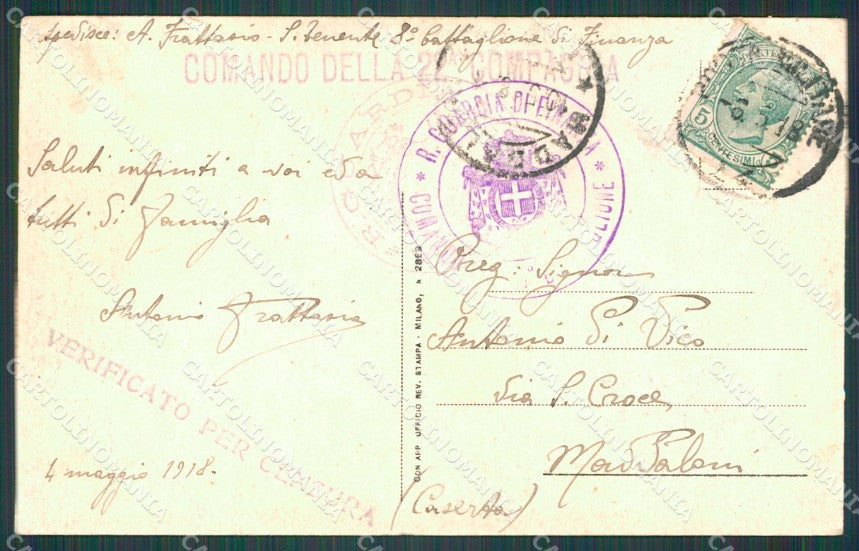 spedisce: A. Frattasio - S. Tenente 8° battaglione di Finanza
COMANDO DELLA 22ª COMPAGNIA
Saluti infiniti a voi e a
tutti di famiglia
Antonio Frattasio
4 maggio 1918-
VERIFICATO PER CENSURA
* R. GUARDIA DI FINANZA *
CON APP. UFFICIO REV. STAMPA - MILANO, N. 2869
5
CENTESIMI
Preg. Signor
Antonio Di Vico
Via S. Croce
Maddaloni
(Caserta)
CARTOLINOMANIA